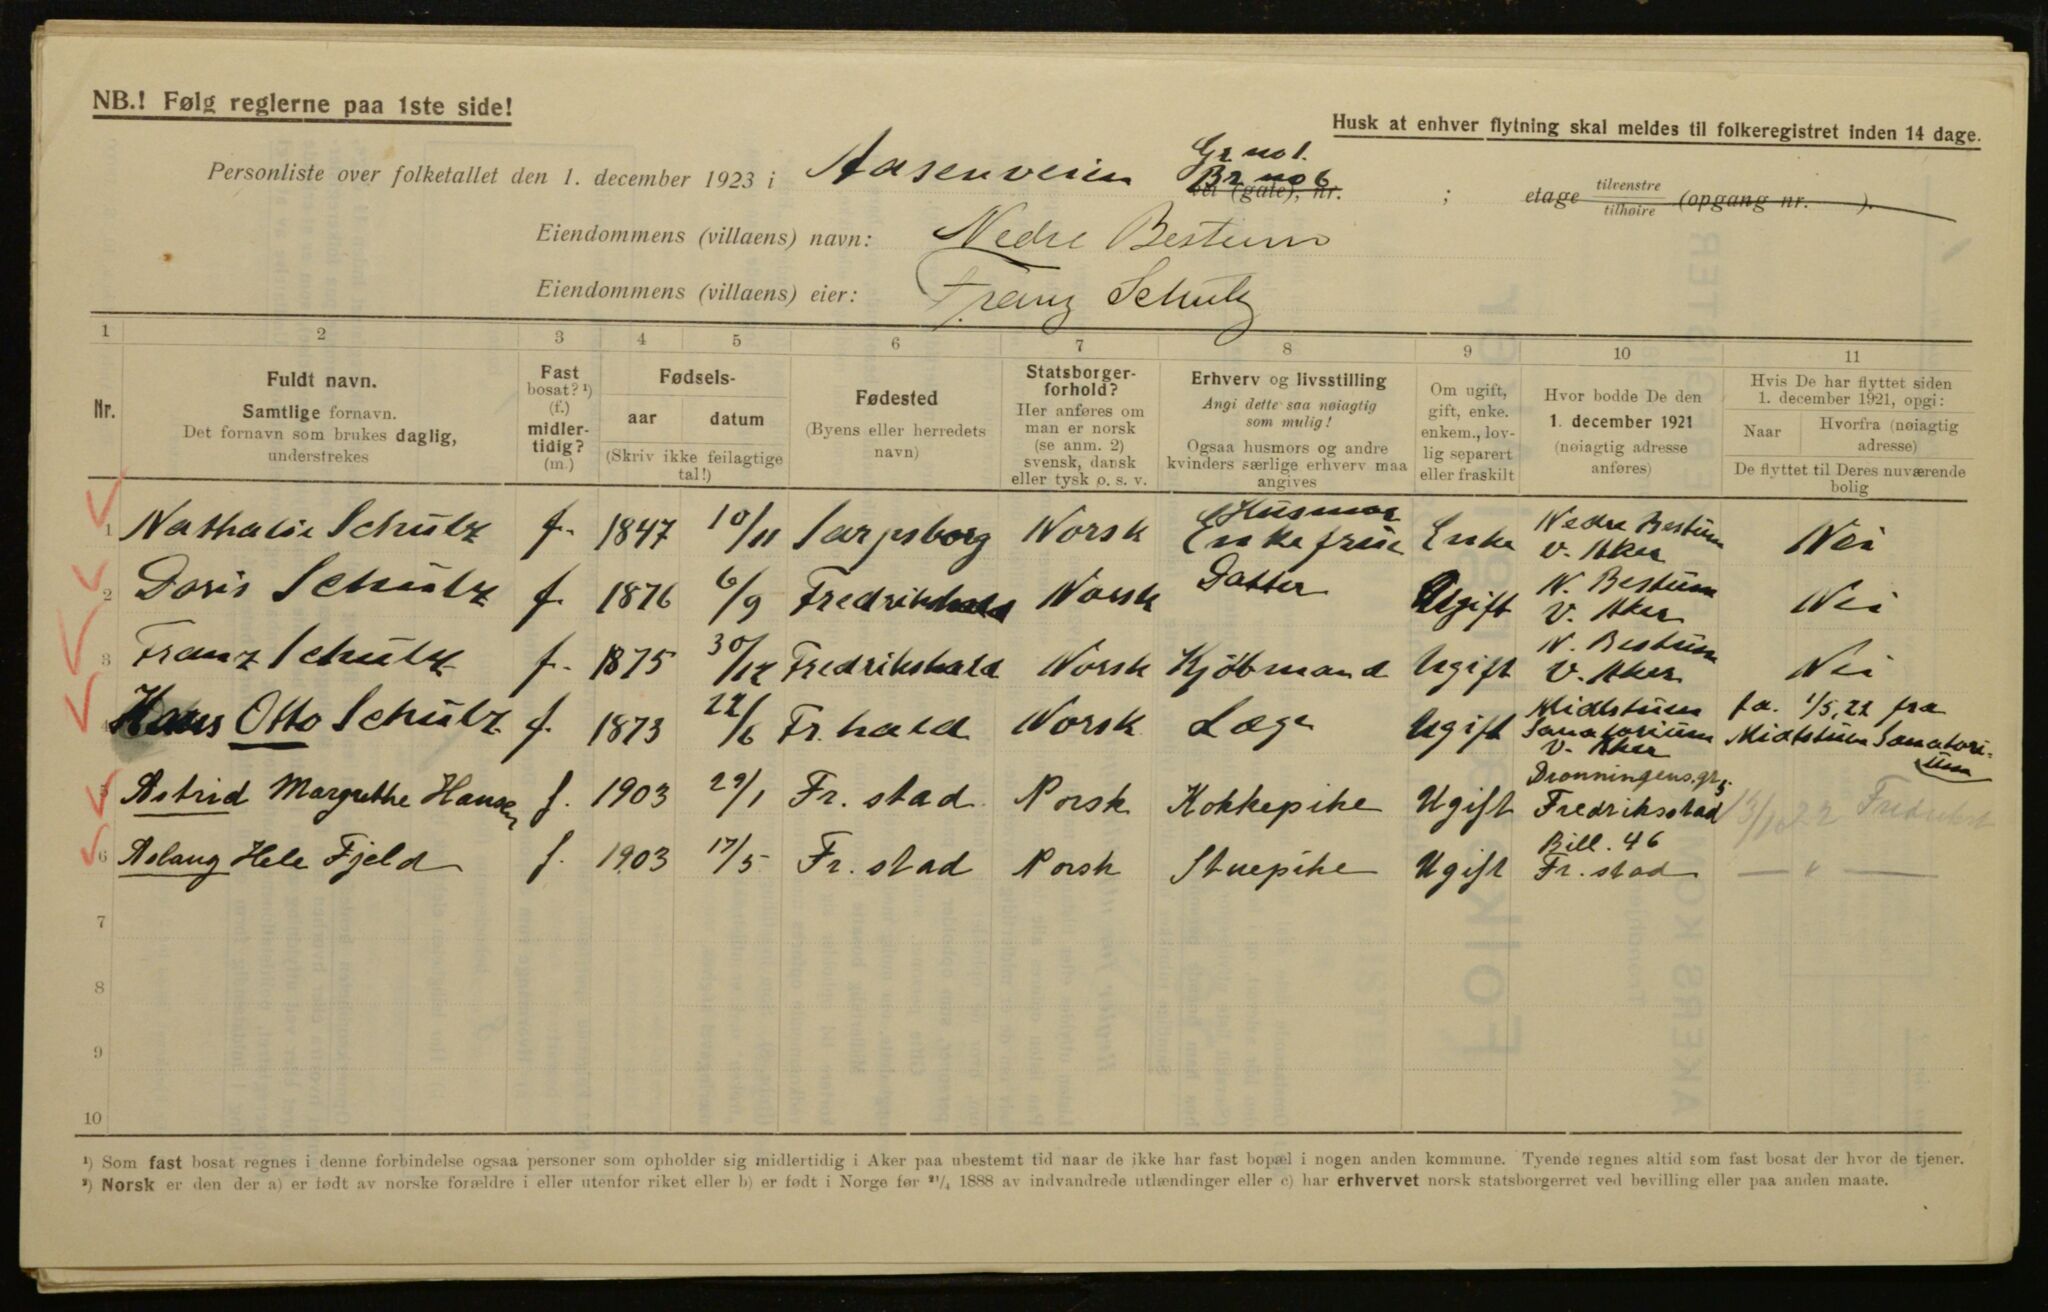 NB.! Følg reglerne paa 1ste side!
Husk at enhver flytning skal meldes til folkeregistret inden 14 dage.
Gr no 1.
Personliste over folketallet den 1. december 1923 i Aasenveien Br no 6 vei (gate), nr. ; etage tilvenstre tilhøire (opgang nr. ).
Eiendommens (villaens) navn: Nedre Bestum
Eiendommens (villaens) eier: Franz Schulz
1 2 3 4 5 6 7 8 9 10 11
Nr.
Fuldt navn.
Samtlige fornavn.
Det fornavn som brukes daglig,
understrekes
Fast
bosat? ¹)
(f.)
midler-
tidig?
(m.)
Fødsels-
aar datum
(Skriv ikke feilagtige
tal!)
Fødested
(Byens eller herredets
navn)
Statsborger-
forhold?
Her anføres om
man er norsk
(se anm. 2)
svensk, dansk
eller tysk o. s. v.
Erhverv og livsstilling
Angi dette saa nøiagtig
som mulig!
Ogsaa husmors og andre
kvinders særlige erhverv maa
angives
Om ugift,
gift, enke.
enkem., lov-
lig separert
eller fraskilt
Hvor bodde De den
1. december 1921
(nøiagtig adresse
anføres)
Hvis De har flyttet siden
1. december 1921, opgi:
Naar Hvorfra (nøiagtig
adresse)
De flyttet til Deres nuværende
bolig
1 Nathalie Schulz f. 1847 10/11 Sarpsborg Norsk Husmor Enkefrue Enke Nedre Bestum V. Aker Nei
2 Doris Schulz f. 1876 6/9 Fredrikshald Norsk Datter Ugift N. Bestum V. Aker Nei
3 Franz Schulz f. 1875 30/12 Fredrikshald Norsk Kjöbmand Ugift N. Bestum V. Aker Nei
Hans Otto Schulz f. 1873 22/6 Fr. hald Norsk Læge Ugift Midtstuen Sanatorium V. Aker fa. 1/5, 22 fra Midtstuen Sanatorium
5 Astrid Margrethe Hansen f. 1903 29/1 Fr. stad Norsk Kokkepike Ugift Dronningens gt 5 Fredriksstad 13/10 22 Fredrikst
6 Aslaug Hele Fjeld f. 1903 17/5 Fr. stad Norsk Stuepike Ugift Bill. 46 Fr. stad — " —
7
8
9
10
¹) Som fast bosat regnes i denne forbindelse ogsaa personer som opholder sig midlertidig i Aker paa ubestemt tid naar de ikke har fast bopæl i nogen anden kommune. Tyende regnes altid som fast bosat der hvor de tjener.
²) Norsk er den der a) er født av norske forældre i eller utenfor riket eller b) er født i Norge før 21/4 1888 av indvandrede utlændinger eller c) har erhvervet norsk statsborgerret ved bevilling eller paa anden maate.